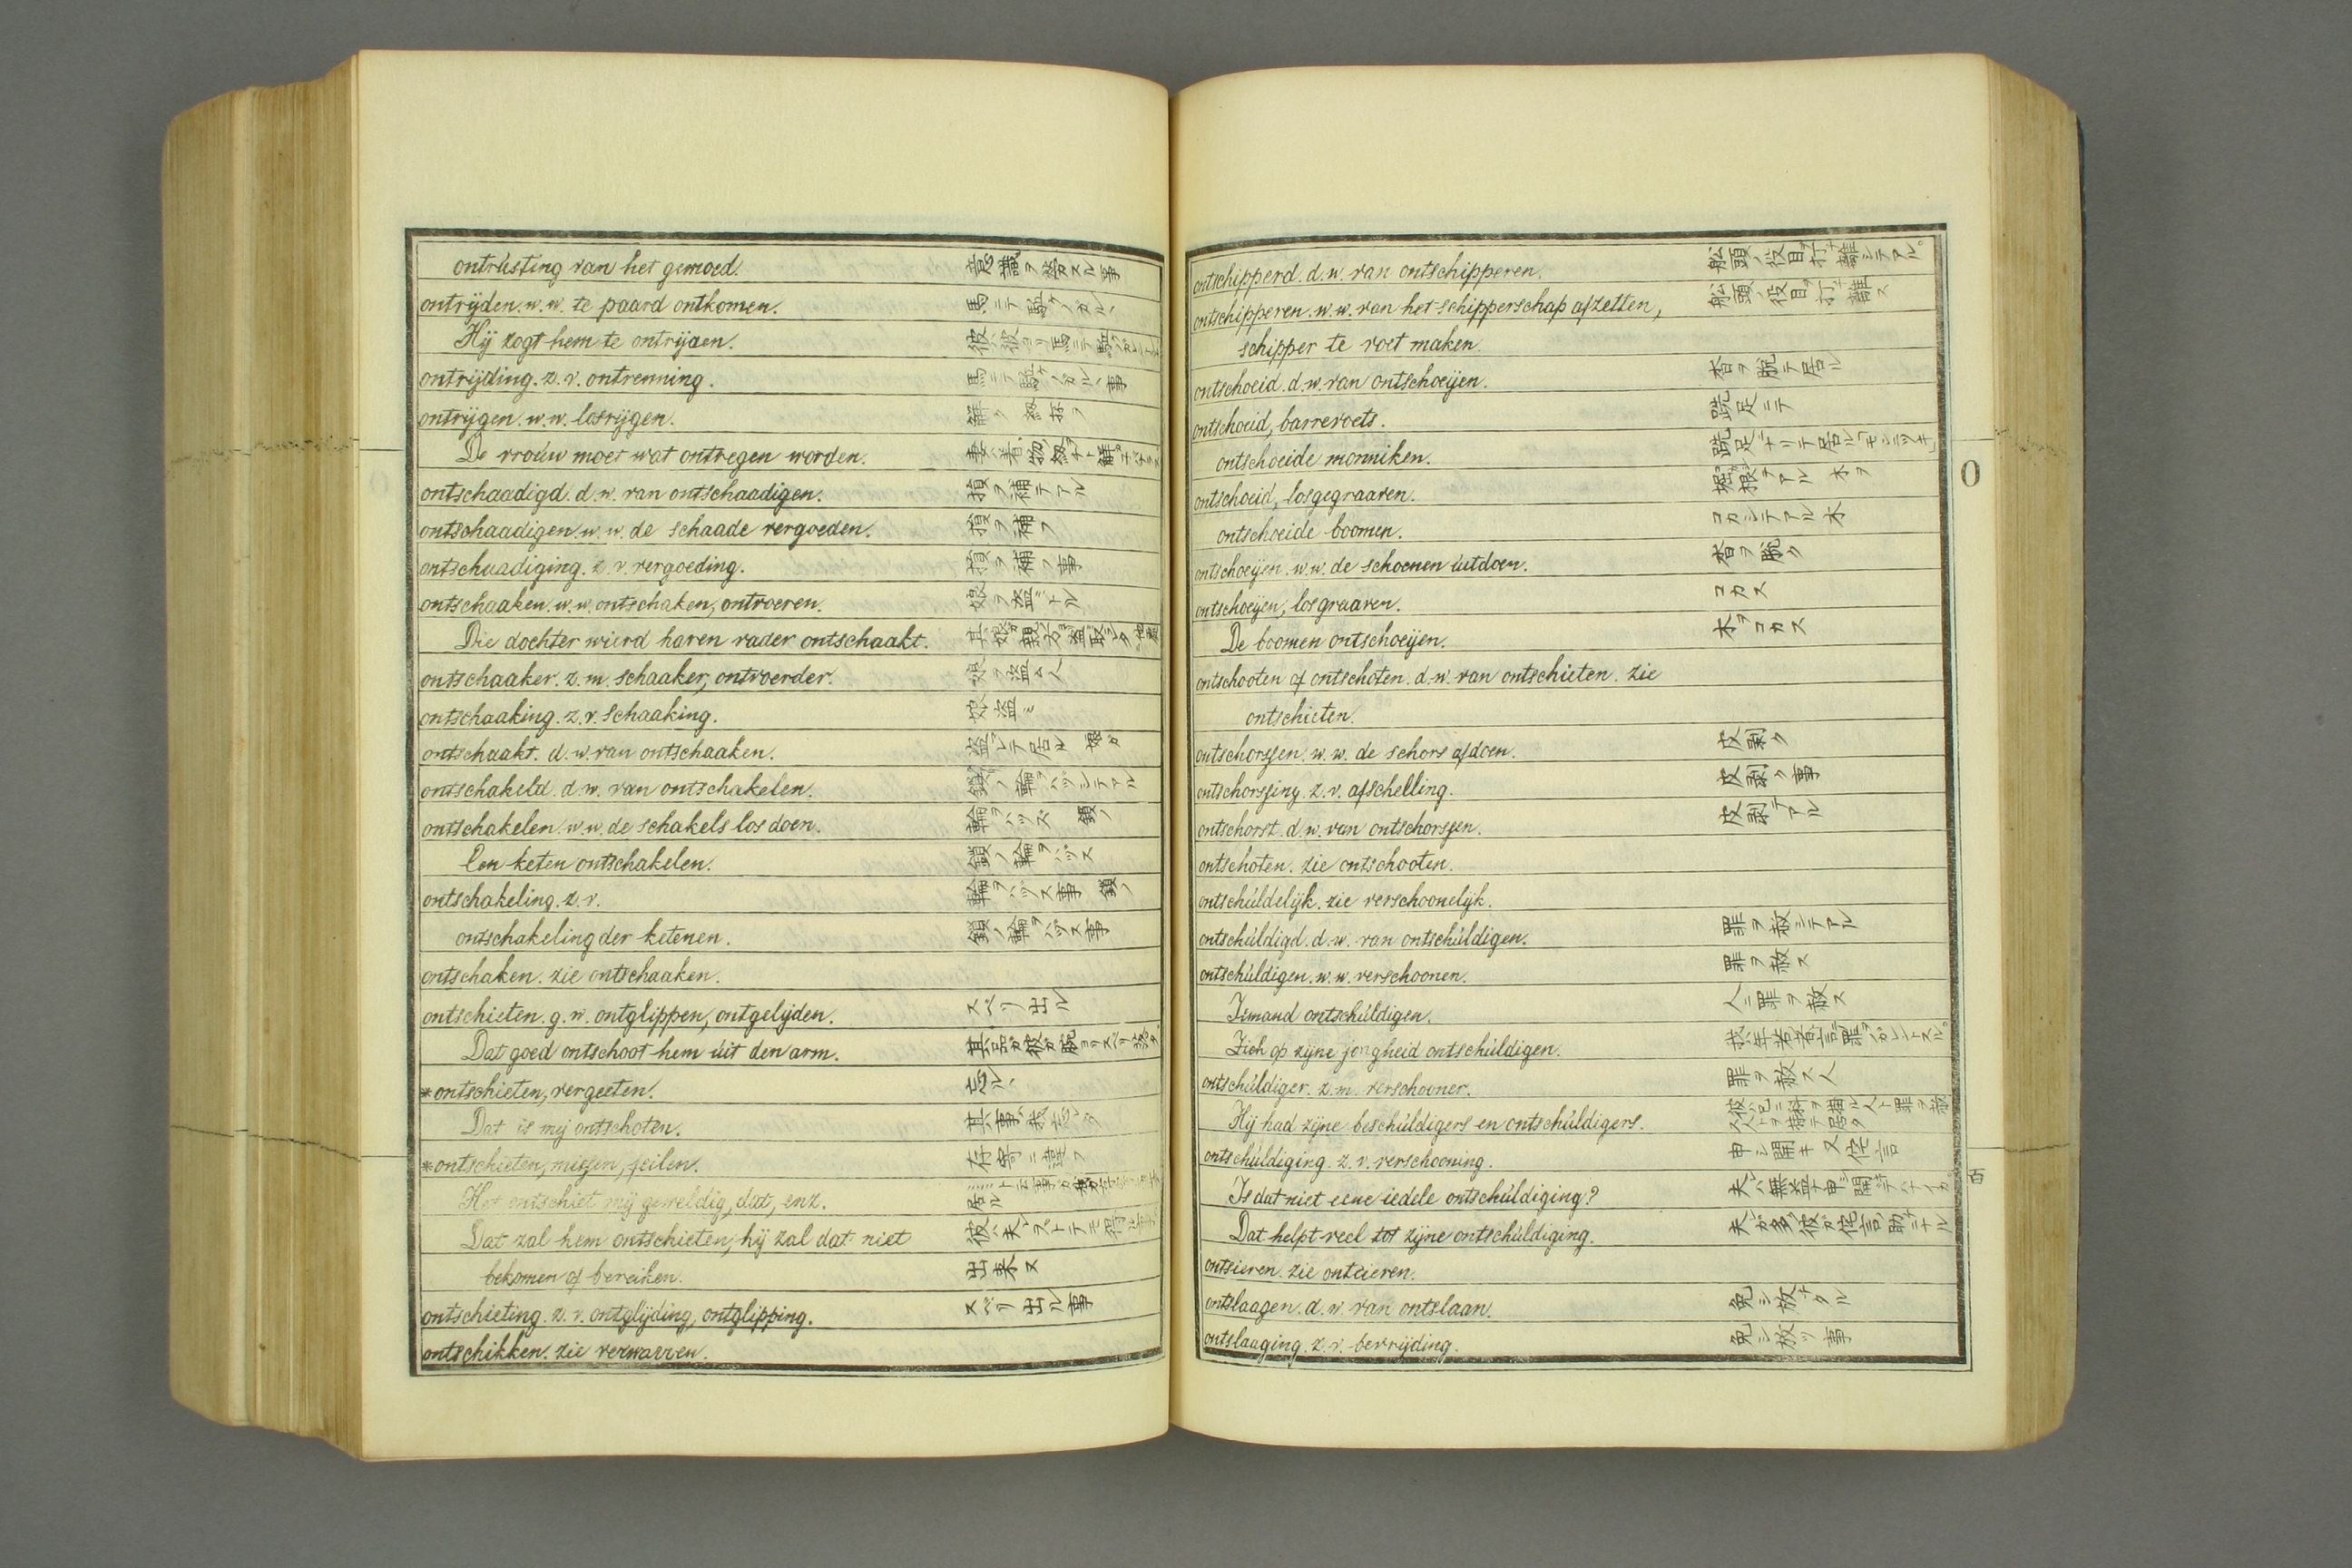 ontrústing van het gemoed. 意識ヲ労スル事
ontrijden. w.w. te paard ontkomen. 馬ニテ駈ケノガルヽ
Hij zogt hem te ontrijden.
ontrijding. z.v. ontrenning. 馬ニテ駈ケノガルヽ事
ontrijgen. w.w. losrijgen. 解ク 紐抔ヲ
De vrouw moet wat ontregen worden.
ontschaadigd. d.w. van ontschaadigen. 損ヲ補テアル
ontschaadigen. w.w. de schaade vergoeden. 損ヲ補フ
ontschaadiging. z.v. vergoeding. 損ヲ補フ事
ontschaaken. w.w. ontschaken, ontvoeren. 娘ヲ盗ミトル
Die dochter wierd haren vader ontschaakt.
ontschaaker. z.m. schaaker, ontvoerder. 娘ヲ盗ム人
ontschaaking. z.v. schaaking. 娘盗ミ
ontschaakt. d.w. van ontschaaken. 盗レテ居ル 娘ガ
ontschakeld. d.w. van ontschakelen. 鎖ノ輪ヲハヅシテアル
ontschakelen. w.w. de schakels los doen. 輪ヲハヅス 鎖ノ
Een keten ontschakelen. 鎖ノ輪ヲハヅス
ontschakeling. z.v. 輪ヲハヅス事 鎖ノ
ontschakeling der ketenen. 鎖ノ輪ヲハヅス事
ontschaken. zie ontschaaken.
ontschieten. g.w. ontglippen, ontgelijden. スベリ出ル
Dat goed ontschoot hem úit den arm. 其品ガ彼ガ腕ヨリスベリ落タ
*ontschieten, vergeeten. 忘ルヽ
Dat is mij ontschoten. 其事ハ我忘レタ
*ontschieten, missen, feilen. 存寄ニ違フ
Het ontschiet mij geweldig, dat, enz. 居ル
Dat zal hem ontschieten, hij zal dat niet
bekomen of bereiken. 出来ヌ
ontschieting. z.v. ontglijding, ontglipping. スベリ出ル事
ontschikken. zie verwarren.
ontschipperd. d.w. van ontschipperen. 舩頭ノ役目ヲ打離シテアル。
ontschipperen. w.w. van het schipperschap afzetten, 舩頭ノ役目ヲ打離ス
schipper te voet maken.
ontschoeid. d.w. van ontschoeijen. 沓ヲ脱テ居ル
ontschoeid, barrevoets. 跣足ニテ
ontschoeide monniken. 跣足ニナリテ居ル「モンニッキ」
ontschoeid, losgegraaven.
ontschoeide boomen. コカシテアル木
ontschoeijen. w.w. de schoenen úitdoen. 沓ヲ脱ク
ontschoeijen, losgraaven. コカス
De boomen ontschoeijen. 木ヲコカス
ontschooten of ontschoten. d.w. van ontschieten. zie
ontschieten.
ontschorssen. w.w. de schors afdoen. 皮剥ク
ontschorssing. z.v. afschelling. 皮剥ク事
ontschorst. d.w. van ontschorssen. 皮剥テアル
ontschoten. zie ontschooten.
ontschúldelijk. zie verschoonelijk.
ontschúldigd. d.w. van ontschúldigen. 罪ヲ赦シテアル
ontschúldigen. w.w. verschoonen. 罪ヲ赦ス
Iemand ontschúldigen. 人ニ罪ヲ赦ス
Zich op zijne jongheid ontschúldigen.
ontschúldiger. z.m. verschooner. 罪ヲ赦ス人
Hij had zijne beschúldigers en ontschúldigers.
ontschúldiging. z.v. verschooning. 申シ開キ 又 侘言
Is dat niet eene iedele ontschúldiging?
Dat helpt veel tot zijne ontschúldiging.
ontsieren. zie ontcieren.
ontslaagen. d.w. van ontslaan. 免シ放ナタル
ontslaaging. z.v. bevrijding. 免シ放ツ事
O